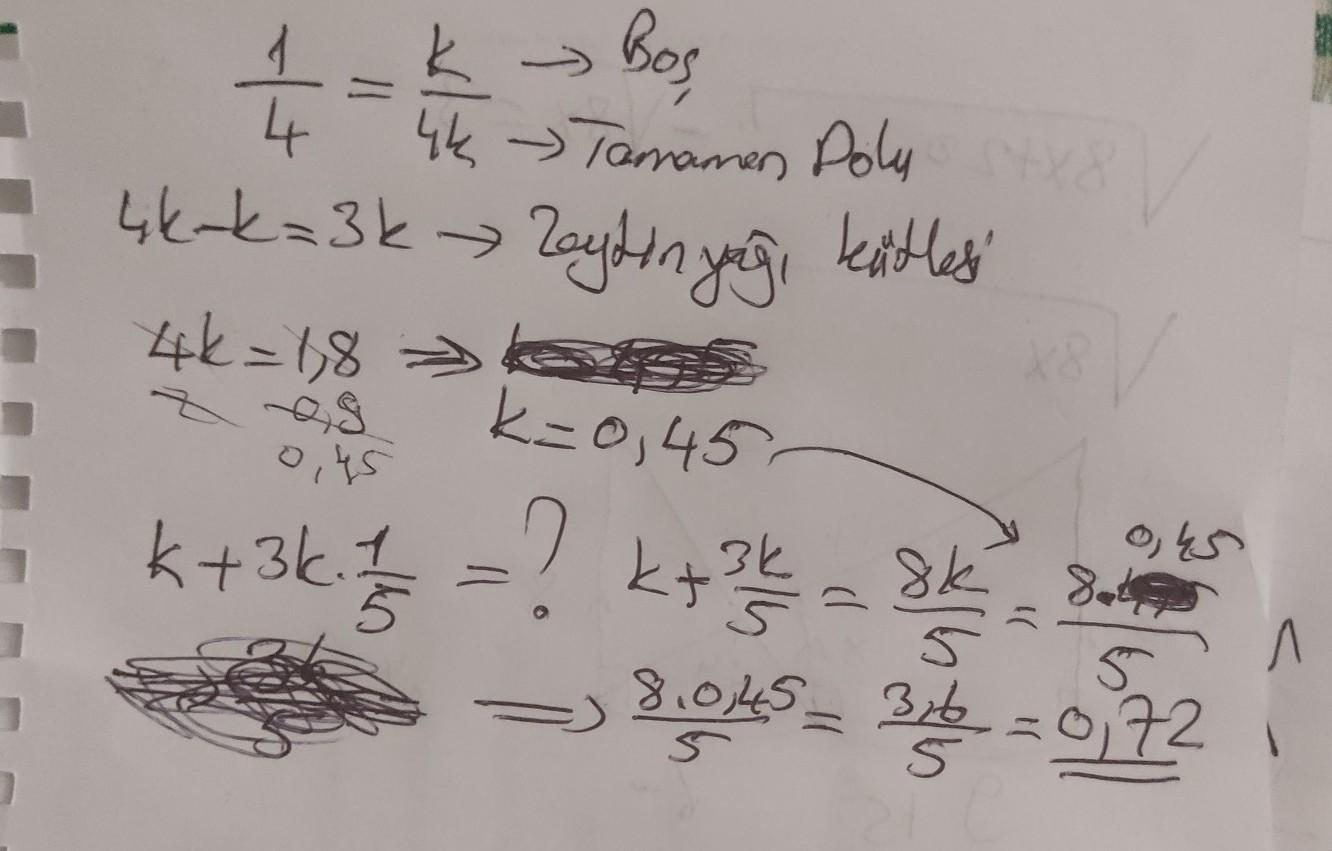 1/4 = k/4k → Boş → Tamamen Dolu
4k-k=3k → Zeytinyağı kütlesi
4k=1,8 ⇒
k=0,45
2 0,9
0,45
k+3k.1/5 = ? k+3k/5 = 8k/5 = 8.0,45/5
⇒ 8.0,45/5 = 3,6/5 = 0,72